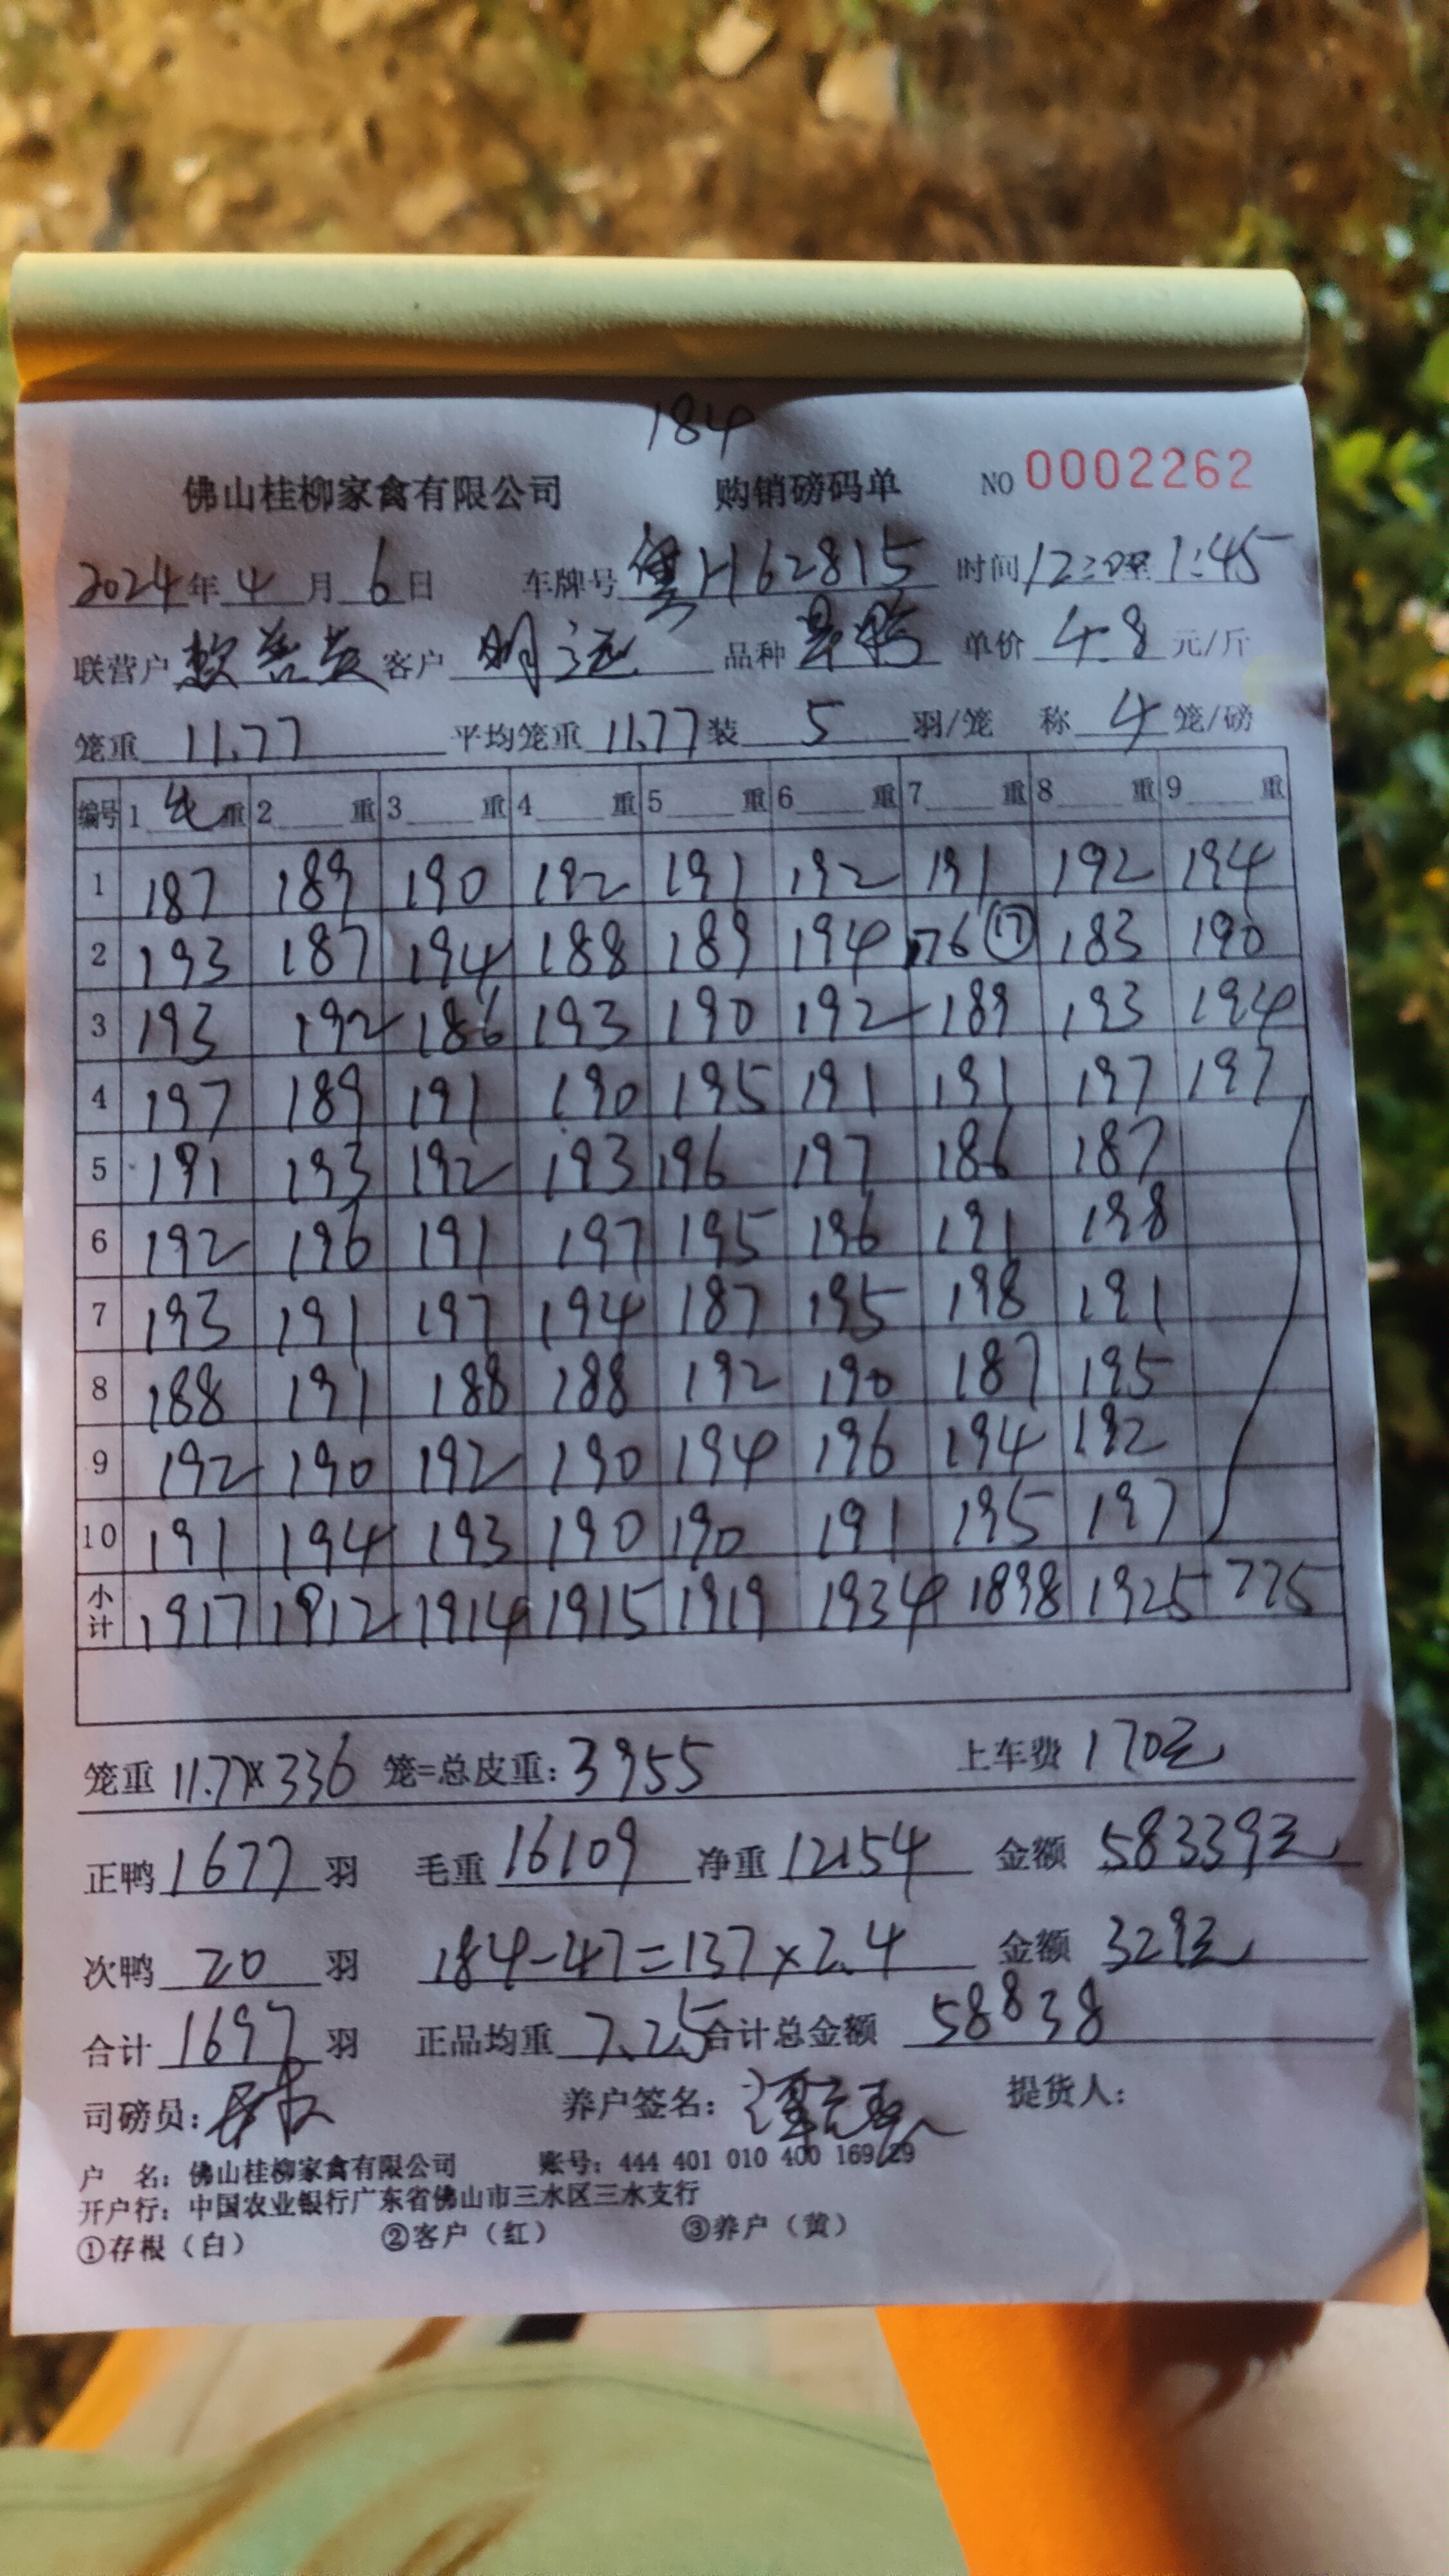 184
佛山桂柳家禽有限公司 购销磅码单 NO 0002262
2024年 4 月 6 日 车牌号 粤H62815 时间 12: 至 1:45
联营户 客户 明远 品种 单价 4.8 元/斤
笼重 11.77 平均笼重 11.77 装 5 羽/笼 称 4 笼/磅
编号 1 毛 重 2 重 3 重 4 重 5 重 6 重 7 重 8 重 9 重
1 187 189 190 192 191 192 191 192 194
2 193 187 194 188 189 194 176 ⑰ 183 190
3 193 192 186 193 190 192 189 193 194
4 197 189 191 190 195 191 191 197 197
5 191 193 192 193 196 197 186 187
6 192 196 191 197 195 196 191 198
7 193 191 197 194 187 195 198 191
8 188 191 188 188 192 190 187 195
9 192 190 192 190 194 196 194 192
10 191 194 193 190 190 191 195 197
小计 1917 1912 1914 1915 1919 1934 1898 1925 775
笼重 11.77×336 笼=总皮重: 3955 上车费 170元
正鸭 1677 羽 毛重 16109 净重 12154 金额 58339元
次鸭 20 羽 184-47=137×2.4 金额 329元
合计 1697 羽 正品均重 7.25 合计总金额 58838
司磅员: 养户签名: 提货人:
户 名: 佛山桂柳家禽有限公司 账号: 444 401 010 400 169 29
开户行: 中国农业银行广东省佛山市三水区三水支行
①存根（白） ②客户（红） ③养户（黄）